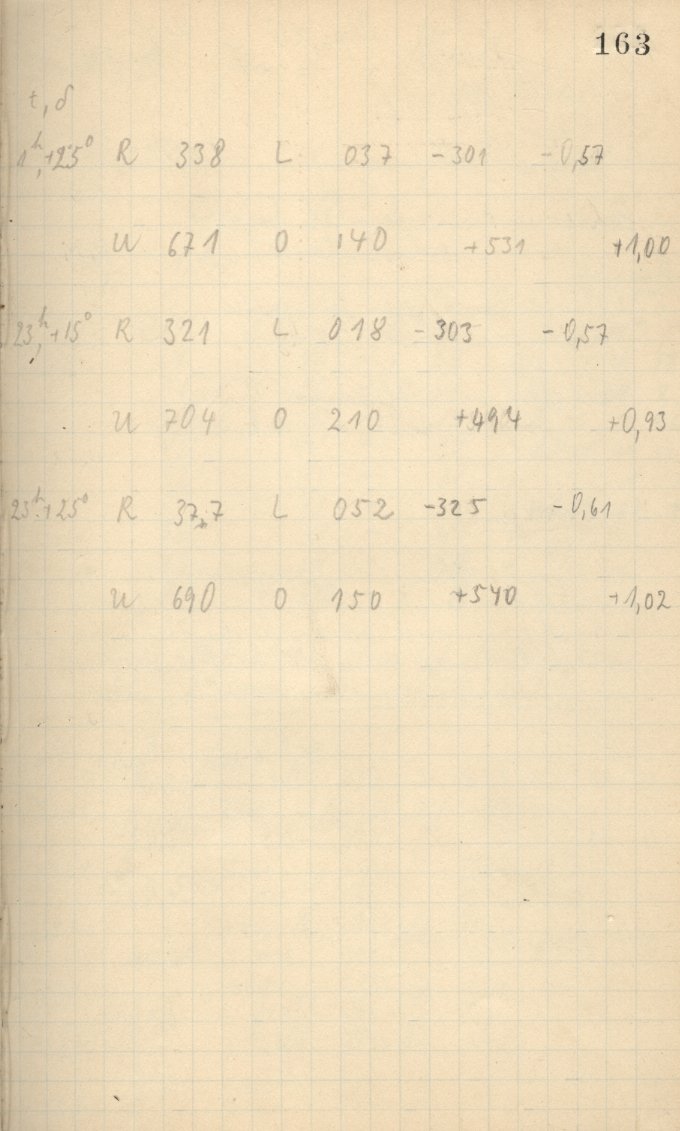 163
t, δ
1ʰ, +25° R 338 L 037 -301 -0,57
U 671 O 140 +531 +1,00
23ʰ, +15° R 321 L 018 -303 -0,57
U 704 O 210 +494 +0,93
23ʰ, +25° R 37,7 L 052 -325 -0,61
U 690 O 150 +540 +1,02